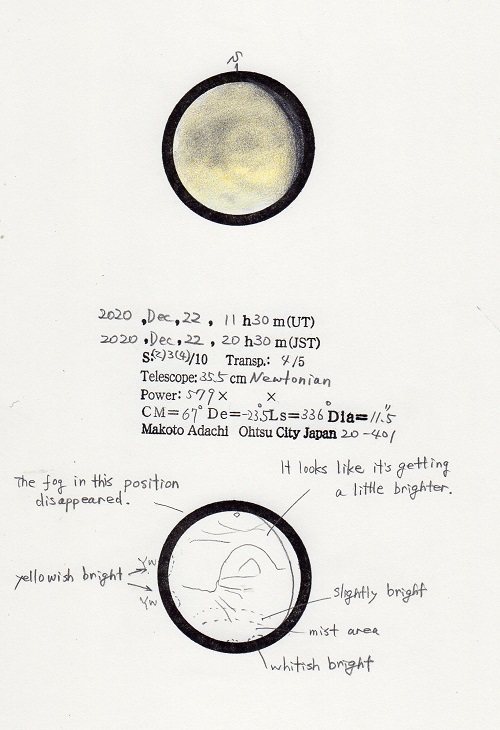 S
2020 ,Dec,22 , 11 h30 m(UT)
2020 ,Dec,22 , 20 h30 m(JST)
S:(2)3(4)/10 Transp.: 4/5
Telescope: 35.5 cm Newtonian
Power: 579× ×
CM=67° De=-23.5° Ls=336° Dia=11.5"
Makoto Adachi Ohtsu City Japan 20-401
It looks like it's getting
a little brighter.
The fog in this position
disappeared.
Yw
yellowish bright
Yw
slightly bright
mist area
whitish bright